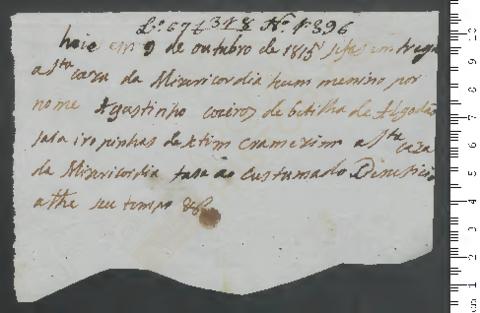 Lº 67 f 318 Nº 1896
hoie em 9 de outubro de 1815 se fas intrega
a Sta caza da Mizericordia hum menino por
nome Agostinho coeiros de betilha de Algodão
de xitim a Sta caza
da Mizericordia fasa ao Custumado Beneficio
athe seu tempo